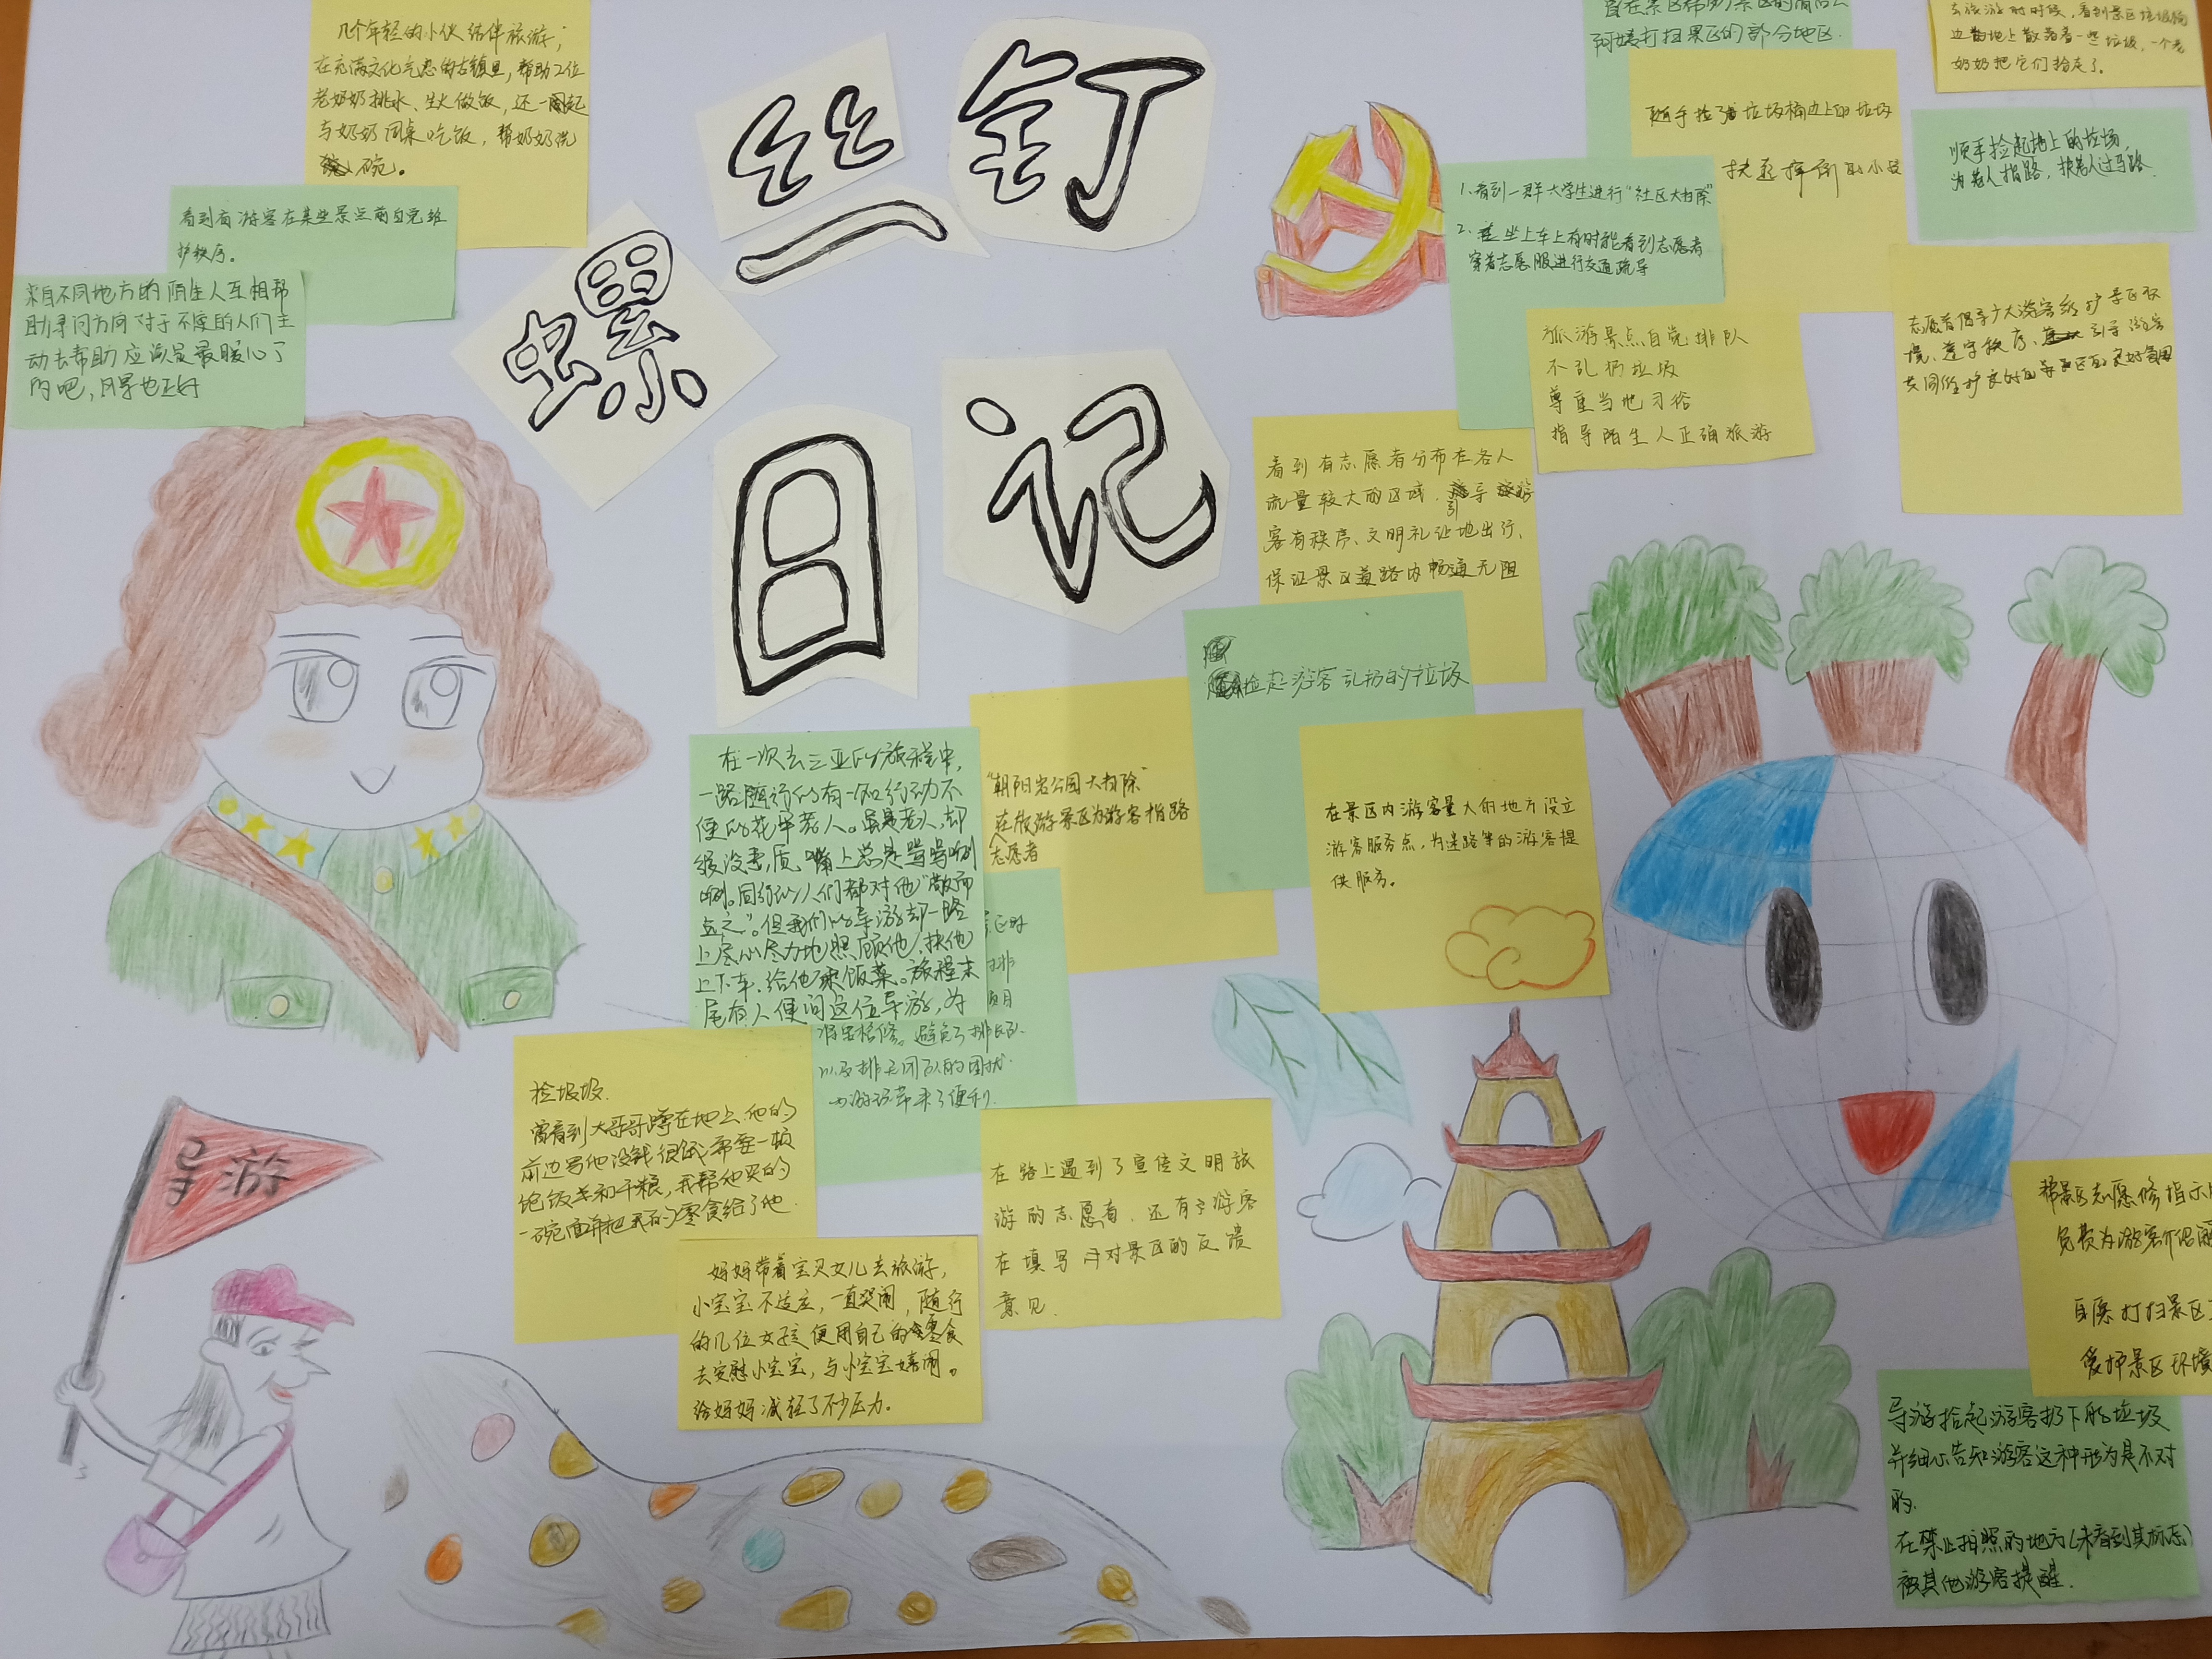 螺丝钉
日记
几个年轻的小伙结伴旅游，
在充满文化气息的古镇里，帮助2位
老奶奶挑水、生火做饭，还一起
与奶奶同桌吃饭，帮奶奶洗
碗。
看到有游客在某些景点前自觉维
护秩序。
来自不同地方的陌生人互相帮
助寻问方向对于不懂的人们主
动去帮助应该是最暖心了
的吧，风景也正好
阿姨打扫景区的部分地区.
去旅游的时候，看到景区垃圾桶
边的地上散落着一些垃圾，一个老
奶奶把它们捡走了。
随手捡了垃圾桶边上的垃圾
扶起摔倒的小孩
顺手捡起地上的垃圾，
为老人指路，扶老人过马路.
1.看到一群大学生进行“社区大扫除”
2.坐上车上有时能看到志愿者
穿着志愿服进行交通疏导
旅游景点自觉排队
不乱扔垃圾
尊重当地习俗
指导陌生人正确旅游
志愿者倡导广大游客维护景区环
境、遵守秩序、引导游客
共同维护良好的景区的良好氛围
看到有志愿者分布在各人
流量较大的区域，引导游
客有秩序、文明礼让地出行，
保证景区道路内畅通无阻
捡起游客乱扔的垃圾
在景区内游客量大的地方设立
游客服务点，为迷路等的游客提
供服务。
“朝阳岩公园大扫除”
在旅游景区为游客指路
志愿者
在一次去三亚的旅程中，
一路随行的有一名行动不
便的花甲老人。虽是老人，却
很没素质，嘴上总是骂骂咧
咧。同行的人们都对他“敬而
远之”。但我们的导游却一路
上尽心尽力地照顾他，扶他
上下车，给他乘饭菜。旅程末
尾有人便问这位导游，为
需要检修。避免了排长队
以及排无用队的困扰.
为游客带来了便利.
捡垃圾.
曾看到大哥哥蹲在地上，他的
前边写他没钱很饿需要一顿
饱饭关和干粮，我帮他买的
一碗面并把我的零食给了他.
妈妈带着宝贝女儿去旅游，
小宝宝不适应，一直哭闹，随行
的几位女孩便用自己的零食
去安慰小宝宝，与小宝宝嬉闹。
给妈妈减轻了不少压力。
在路上遇到了宣传文明旅
游的志愿者，还有游客
在填写对景区的反馈
意见.
帮景区志愿修指示
免费为游客介绍
自愿打扫景区
爱护景区环境
导游捡起游客扔下的垃圾
并细心告知游客这种行为是不对
的.
在禁止拍照的地方(未看到其标志)
被其他游客提醒.
导游